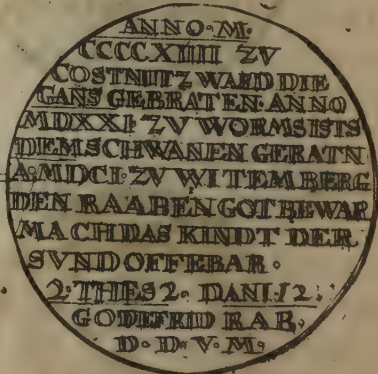 ANNO·M·
CCCCXIIII ZV
COSTNITZ WARD DIE
GANS GEBRATEN· ANNO
MDXXI· ZV WORMS ISTS
DEM SCHWANEN GERATN
A· MDCI· ZV WITEMBERG
DEN RAABEN GOT BEWAR
MACH DAS KINDT DER
SVND OFFEBAR·
2·THES 2· DANI·12·
GODEFRID RAB·
D·D·V·M·